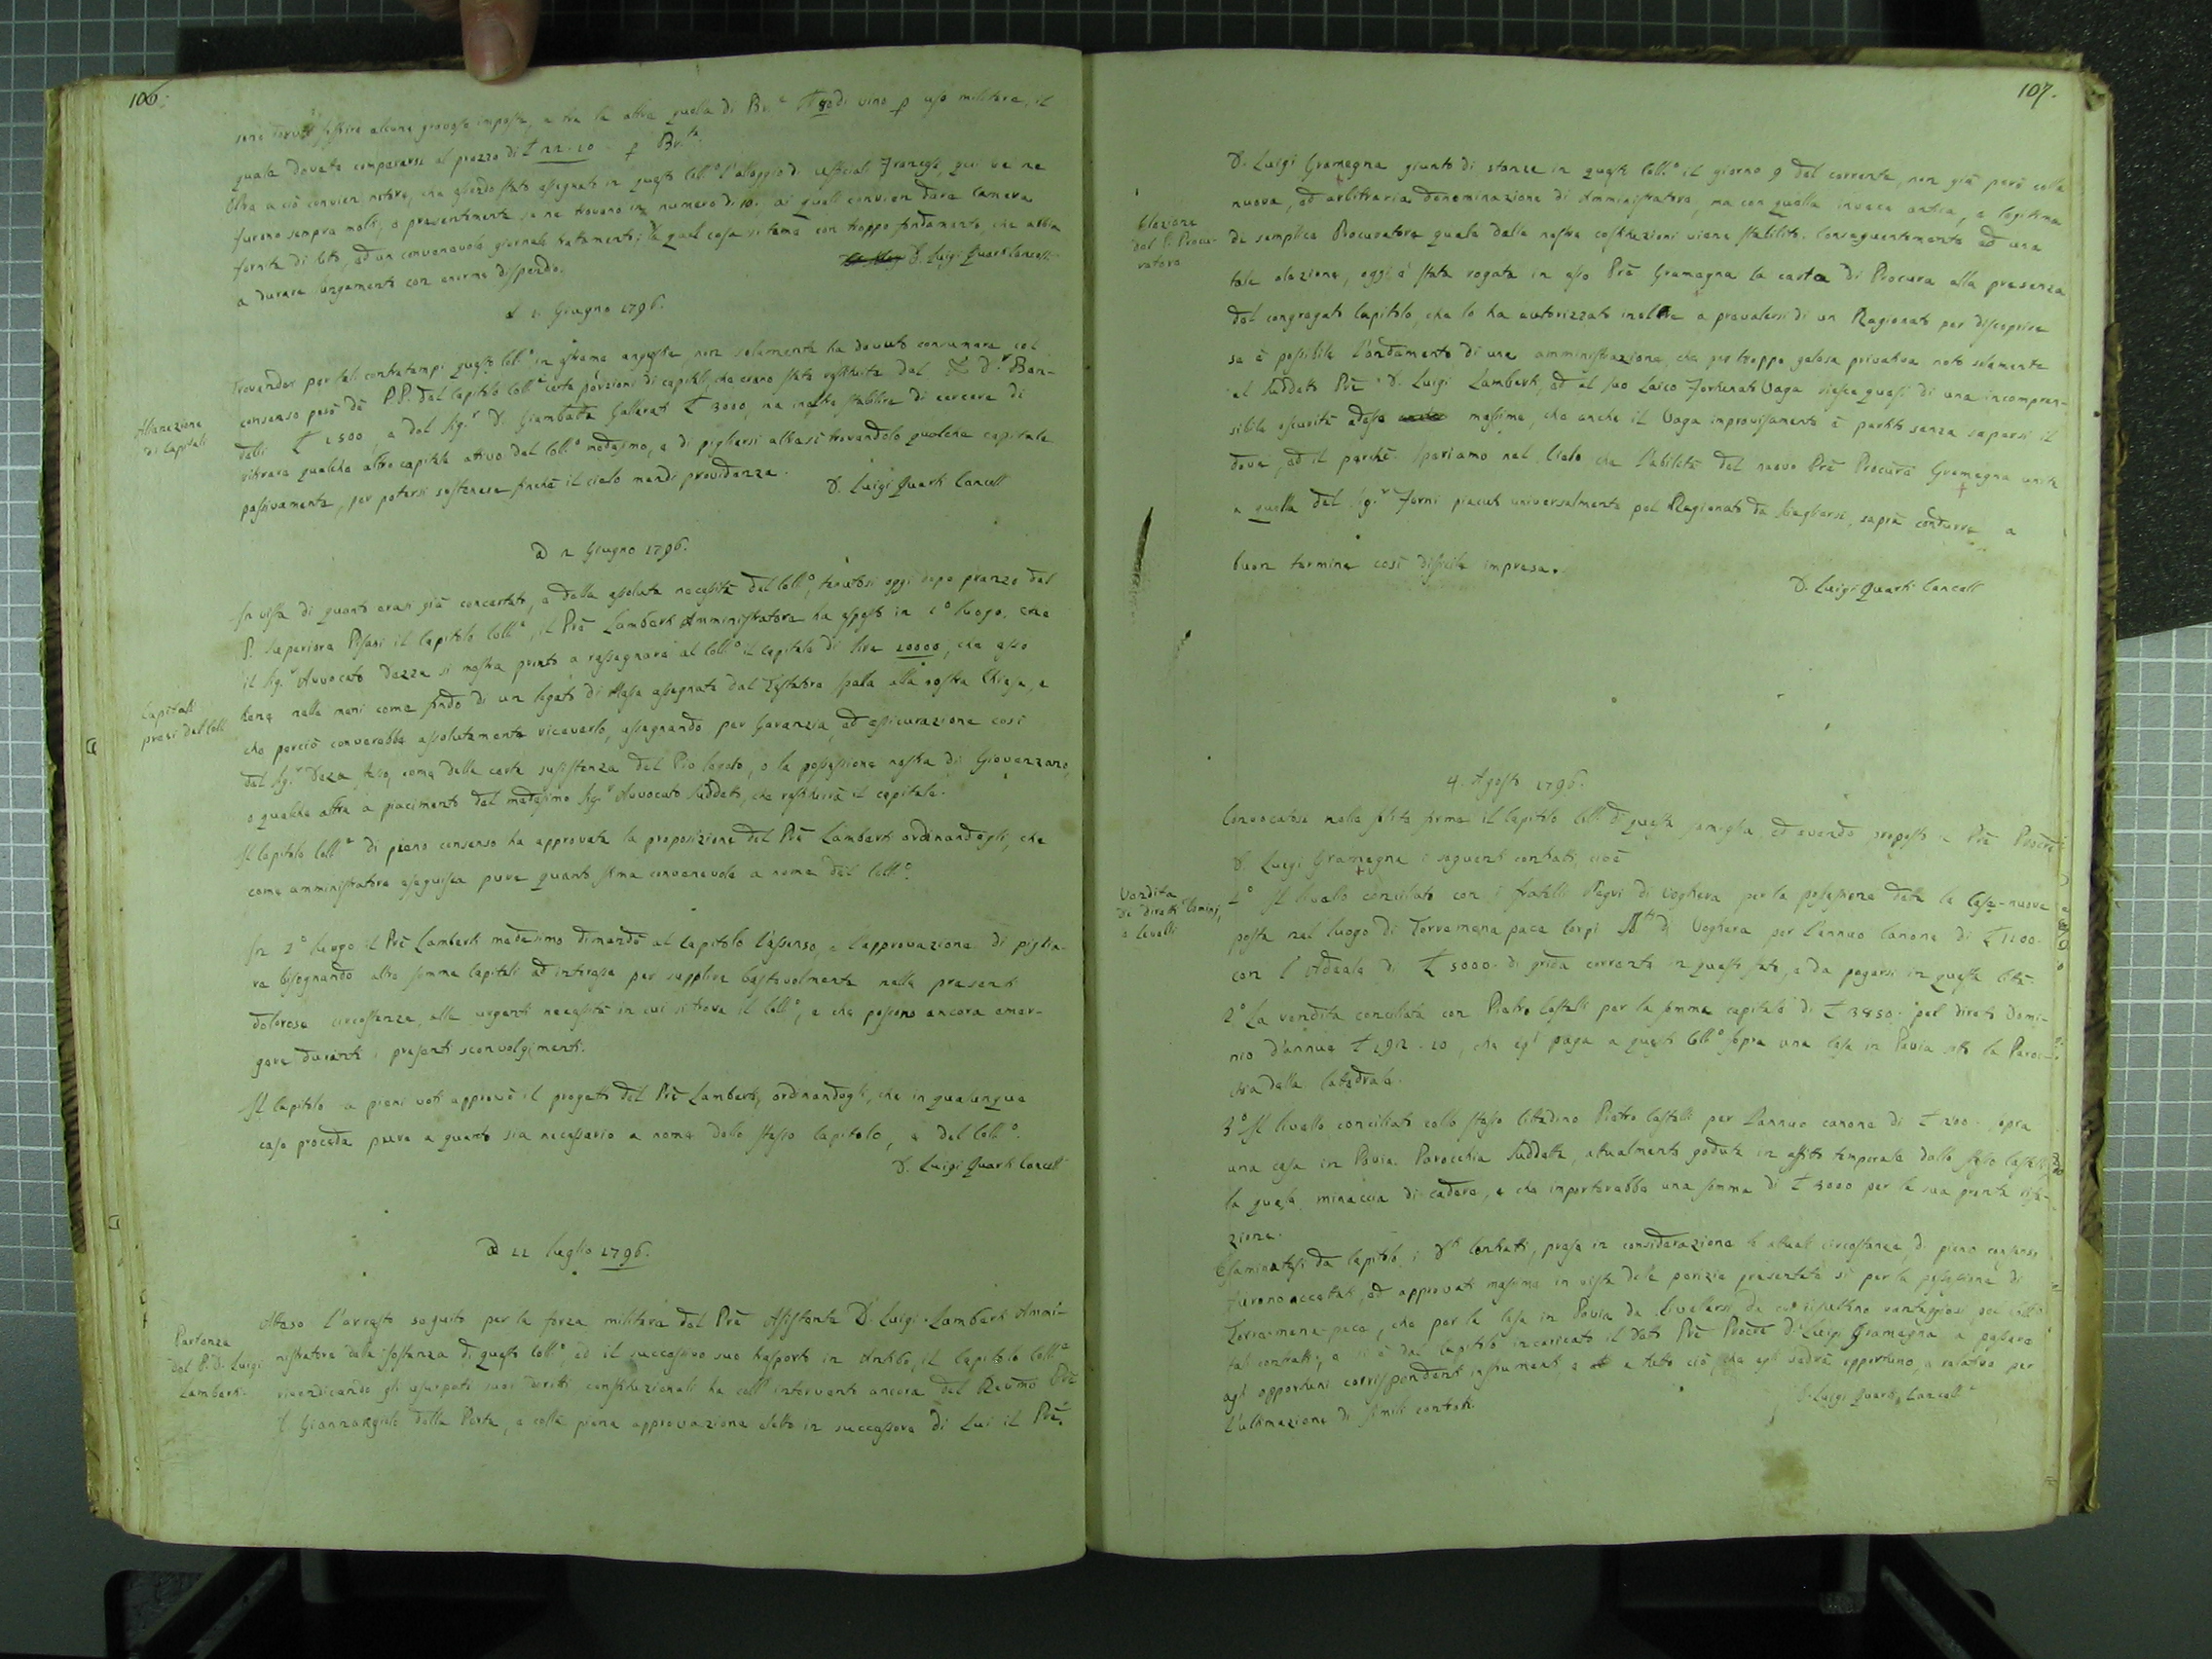 106.
sono dovute soffrire alcune gravose imposte, e tra le altre quella di Br.e N. 80 di vino p uso militare, il
quale dovette comperarsi al prezzo di £ 22.10 p Br.ta
Oltra a ciò convien notare, che essendo stato assegnato in questo Coll.o l'alloggio di ufficiali Francesi, qui ve ne
furono sempre molti, e presentemente se ne trovano in numero di 10. ai quali convien dare camera
fornita di letto, ed un convenevole giornale trattamento; la qual cosa si teme con troppo fondamento, che abbia
a durare lungamente con enorme dispendio.
D. Luigi Quarti Cancell.
A 1. Giugno 1796.
Alienazione
di Capitali
Trovandosi per tali contratempi questo Coll.o in estreme angustie, non solamente ha dovuto consumare col
consenso però de PP. del Capitolo Coll.e certe porzioni di capitali, che erano state restituite dal D.r Ban-
delli £ 1500, e dal Sig.r D. Giambatta Gallerati £ 3000, ma inoltre stabilire di cercare di
ritirare qualche altro capitale attivo del Coll.o medesimo, e di pigliarsi altresì trovandolo qualche capitale
passivamente, per potersi sostenere finchè il cielo mandi providenza.
D. Luigi Quarti Cancell
A 2 Giugno 1796.
Capitali
presi dal Coll.
In vista di quanto erasi già concertato, e della assoluta necessità del Coll.o, tenutosi oggi dopo pranzo dal
P. Superiore Pisani il Capitolo Coll.e, il Prē Lamberti Amministratore ha esposto in 1.o luogo, che
il Sig.r Avvocato Dezza si mostra pronto a rassegnare al Coll.o il capitale di lire 20000, che esso
tiene nelle mani come fondo di un legato di Messe assegnate dal Testatore Spalla alla nostra Chiesa, e
che perciò converebbe assolutamente riceverlo, assegnando per Garanzia, ed assicurazione così
del Sig.r Deza stesso, come della certa sussistenza del Pio legato, o la possessione nostra di Giovenzano,
o qualche altra a piacimento del medesimo Sig.r Avvocato suddetto, che restituirà il capitale.
Il Capitolo Coll.e di pieno consenso ha approvata la proposizione del Prē Lamberti ordinandogli, che
come amministratore eseguisca pure quanto stima convenevole a nome del Coll.o
In 2.o luogo il Prē Lamberti medesimo dimandò al Capitolo l'assenso, e l'approvazione di piglia-
re bisognando altre somme Capitali ad interesse per supplire bastevolmente nelle presenti
dolorose circostanze, alle urgenti necessità in cui si trova il Coll.o, e che possono ancora emer-
gere durante i presenti sconvolgimenti.
Il Capitolo a pieni voti approvò il progetto del Prē Lamberti, ordinandogli, che in qualunque
caso proceda pure a quanto sia necessario a nome dello stesso Capitolo, e del Coll.o.
D. Luigi Quarti Cancell
A 11 luglio 1796.
Partenza
del P. D. Luigi
Lamberti.
Atteso l'arresto seguito per la forza militare del Prē Assistente D. Luigi Lamberti Ammi-
nistratore delle sostanze di questo Coll.o, ed il successivo suo trasporto in Antibo, il Capitolo Coll.e
rivendicando gli usurpati suoi diritti constituzionali ha coll' intervento ancora del Reumo Prē
D Giannangelo della Porta, e colla piena approvazione eletto in successore di Lui il Prē
107.
Elezione
del P. Procu-
ratore
D. Luigi Gramegna giunto di stanza in questo Coll.o il giorno 9 del corrente, non già però colla
nuova, ed arbitraria denominazione di Amministratore, ma con quella invece antica, e legittima
di semplice Procuratore quale dalle nostre costituzioni viene stabilito. Conseguentemente ad una
tale elezione, oggi è stata rogata in esso Prē Gramegna la carta di Procura alla presenza
del congregato Capitolo, che lo ha autorizzato inoltre a prevalersi di un Ragionato per discoprire
se è possibile l'andamento di una amministrazione, che per troppo gelosa privativa noto solamente
al suddetto Prē D. Luigi Lamberti, ed al suo Laico Fortunato Vaga riesce quasi di una incompren-
sibile oscurità adesso massime, che anche il Vaga improvisamente è partito senza sapersi il
dove, ed il perchè. Speriamo nel Cielo che l'abilità del nuovo Prē Procurē Gramegna unita
a quella del Sig.r Forni piaciuto universalmente pel Ragionato da scegliersi, saprà condurre a
buon termine così difficile impresa.
D. Luigi Quarti Cancell
4. Agosto 1796.
Convocatosi nella solita forma il Capitolo Coll di questa famiglia, ed avendo proposti il Prē Procrē
D. Luigi Gramegna i seguenti contratti, cioè
Vendita
de' diretti Dominj,
e livelli
1.o Il livello conciliato con i fratelli Negri di Voghera per la possessione detta la Casa-nuova
posta nel luogo di Torremenapace Corpi Sti di Voghera per l'annuo Canone di £ 1100.
con l'Adeale di £ 5000. di grida corrente in questo stato, e da pagarsi in questa Città.
2.o La vendita conciliata con Pietro Castelli per la somma capitale di £ 3850. pel diretto Domi-
nio d'annue £ 192.10, che egli paga a questo Coll.o sopra una casa in Pavia sotto la Paroc-
chia della Catedrale.
3.o Il livello conciliato collo stesso Cittadino Pietro Castelli per l'annuo canone di £ 200. sopra
una casa in Pavia. Parocchia suddetta, attualmente goduta in affitto temporale dallo stesso Castelli
la quale minaccia di cadere, e che importerebbe una somma di £ 3000 per la sua pronta ripa-
zione.
Esaminatisi da Capitolo i d.ti Contratti, prese in considerazione le attuali circostanze, di pieno consenso
furono accettati, ed approvati massime in vista delle perizie presentate sì per la possessione di
Torre-mena-pace, che per le case in Pavia da livellarsi, da cui risultano vantaggiosi pel Coll.o
tali contratti; e si è dal Capitolo incaricato il detto Prē Procrē D. Luigi Gramegna a passare
agli opportuni corrispondenti instrumenti, e a tutto ciò che egli vedrà opportuno, e relativo per
l'ultimazione di simili contratti.
D. Luigi Quarti Cancell.e